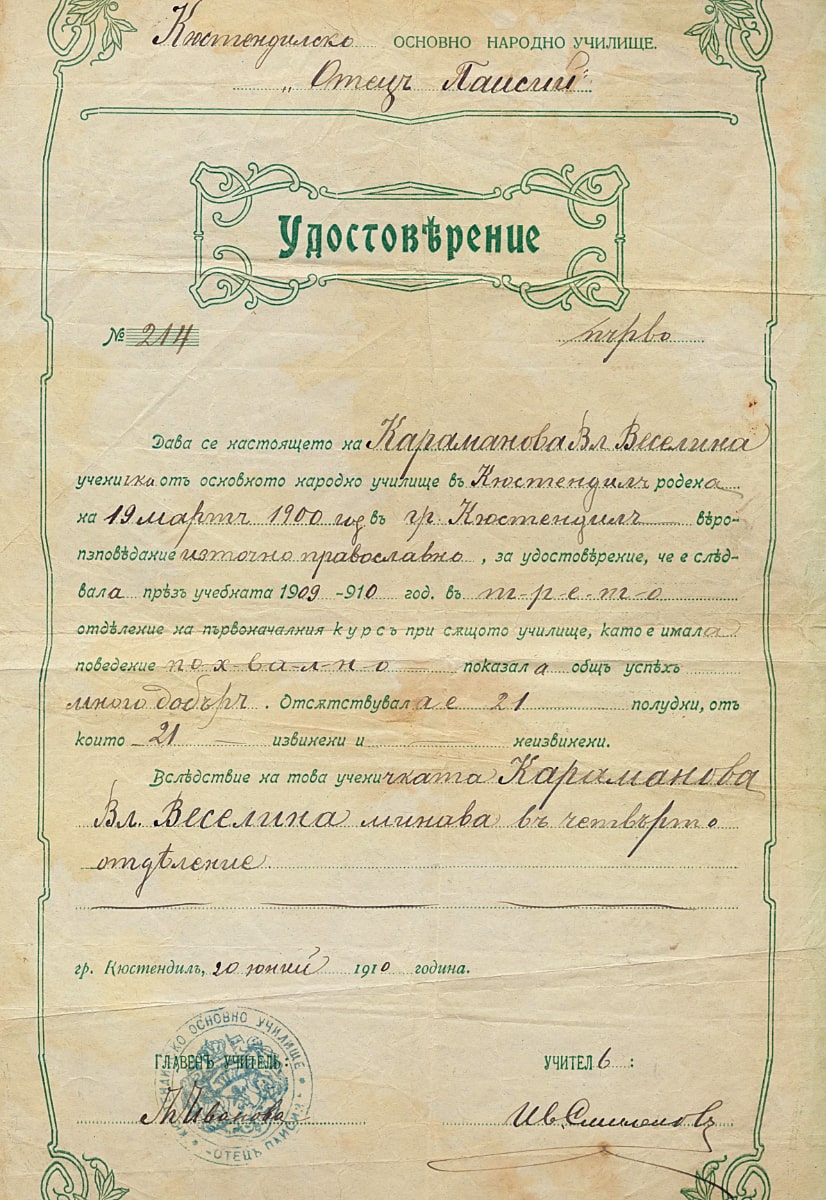 Кюстендилско ОСНОВНО НАРОДНО УЧИЛИЩЕ.
„Отецъ Паисий“
Удостовѣрение
№ 214 първо
Дава се настоящето на Караманова Вл. Веселина
ученичка отъ основното народно училище въ Кюстендилъ родена
на 19 мартъ 1900 год въ гр. Кюстендилъ вѣро-
пзповѣдание източно православно, за удостовѣрение, че е слѣд-
вала прѣзъ учебната 1909-910 год. въ т-р-е-т-о
отдѣление на първоначалния курсъ при сѫщото училище, като е имала
поведение п о х-в-а-л-н-о показала общъ успѣхъ
много добъръ. Отсѫтствувала е 21 полудни, отъ
които 21 извинени и неизвинени.
Вслѣдствие на това ученичката Караманова
Вл. Веселина минава въ четвърто
отдѣление
гр. Кюстендилъ, 20 юний 1910 година.
ГЛАВЕНЪ УЧИТЕЛЬ: УЧИТЕЛЬ:
Иванова Ив.
ОСНОВНО УЧИЛИЩЕ
„ОТЕЦЪ ПАИСИЙ“